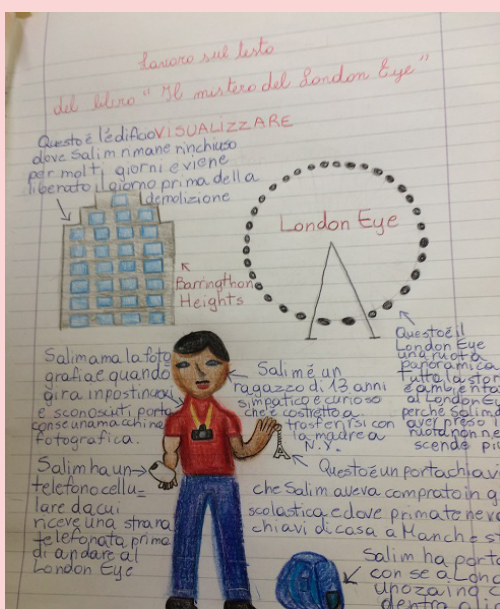 Lavoro sul testo
del libro "Il mistero del London Eye"
VISUALIZZARE
Questo è l'edificio
dove Salim rimane rinchiuso
per molti giorni e viene
liberato il giorno prima della
demolizione
London Eye
Barringthon
Heights
Questo è il
London Eye
una ruota
panoramica
Tutta la stor
al London Eye
perchè Salim
aver preso
ruota non ne
scende più
Salim ama la foto
grafia e quando
gira in posti nuovi
e sconosciuti porta
con se una macchina
fotografica.
Salim é un
ragazzo di 13 anni
simpatico e curioso
che è costretto a
trasferirsi con
la madre a
N.Y.
Salim ha un
telefono cellu=
lare da cui
riceve una strana
telefonata prima
di andare al
London Eye
Questo è un portachiavi
che Salim aveva comprato in g
scolastica e dove prima teneva
chiavi di casa a Manchest
Salim ha porta
con se a Lond
uno zaino
dentro